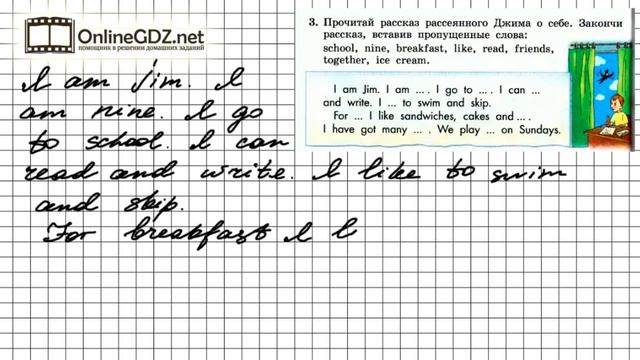 OnlineGDZ.net
помощник в решении домашних заданий
3. Прочитай рассказ рассеянного Джима о себе. Закончи
рассказ, вставив пропущенные слова:
school, nine, breakfast, like, read, friends,
together, ice cream.
I am Jim. I am ... . I go to ... . I can ...
and write. I ... to swim and skip.
For ... I like sandwiches, cakes and ... .
I have got many ... . We play ... on Sundays.
I am Jim. I
am nine. I go
to school. I can
read and write. I like to swim
and skip.
For breakfast I l